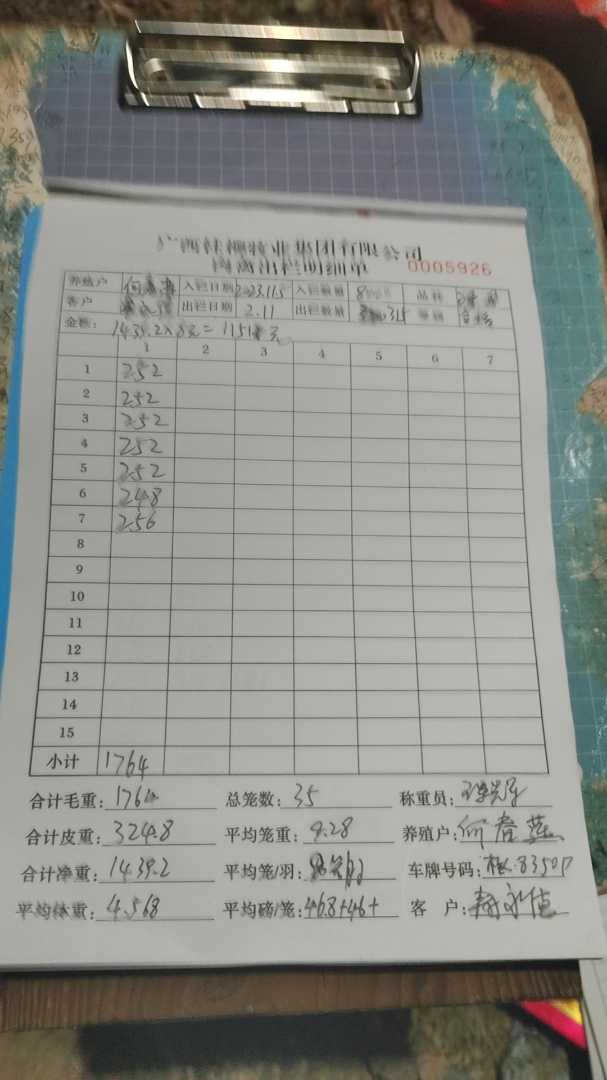 广西桂柳牧业集团有限公司
肉禽出栏明细单 0005926
养殖户 入栏日期 2023.11.5 入栏数量 品种
客户 出栏日期 2.11 出栏数量 315 等级 合格
金额: 1439.2×8元=
1 2 3 4 5 6 7
1 252
2 252
3 252
4 252
5 252
6 248
7 256
8
9
10
11
12
13
14
15
小计 1764
合计毛重: 1764 总笼数: 35 称重员:
合计皮重: 324.8 平均笼重: 9.28 养殖户: 何春燕
合计净重: 1439.2 平均笼/羽: 车牌号码: 桂·8350P
平均体重: 4.568 平均磅/笼: 46.8+46+ 客 户: